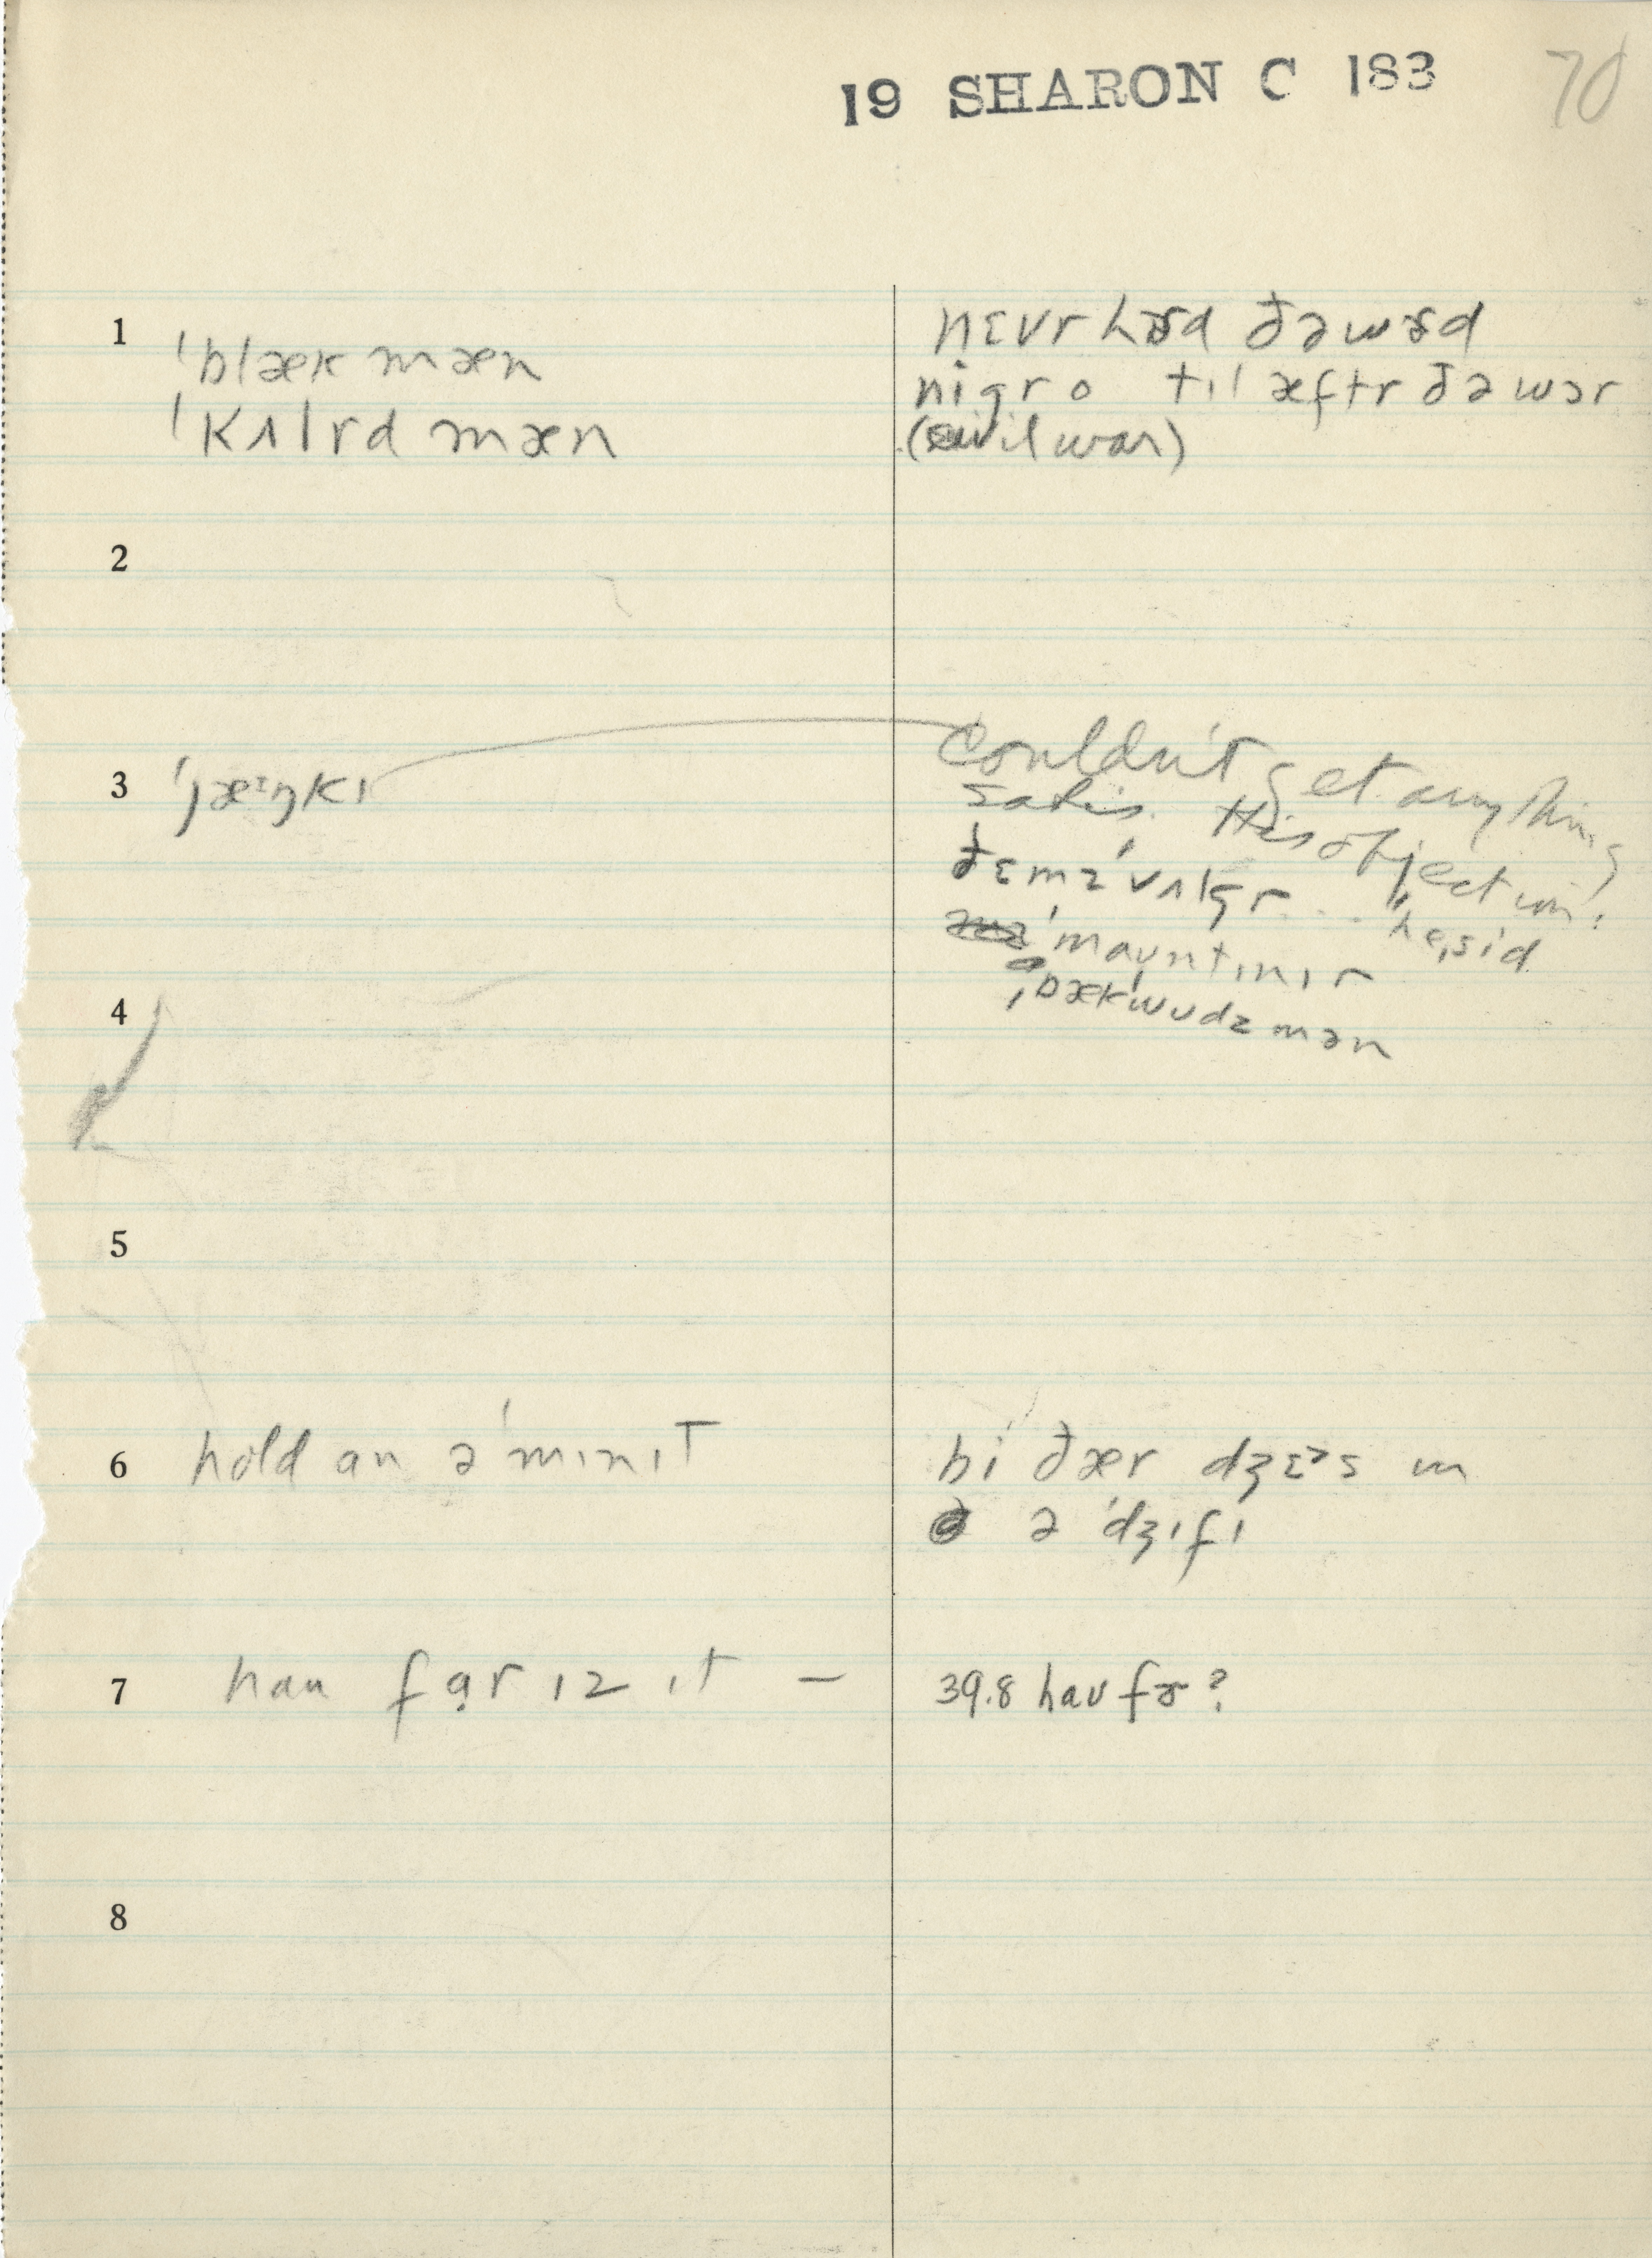 19 SHARON C 183 70
1 ˈblæk mæn
ˈkʌlrd mæn
nɛvr hɚd ðə wɚd
nigro til æftr ðə wɔr
(civil war)
2
3 ˈjæᶦŋkɪ
Couldn't get anything
satis. His objection:
ðɛmz ˈvʌlgr ... he sɪd
ˈmaʊntɪnɪr
ˌbækˈwʊdzmən
4
5
6 hold an ə ˈmɪnɪt
bi ðær dʒɛᵊs ɪn
ə ˈdʒɪfɪ
7 hau far ɪz ɪt —
39.8 hau fɚ?
8